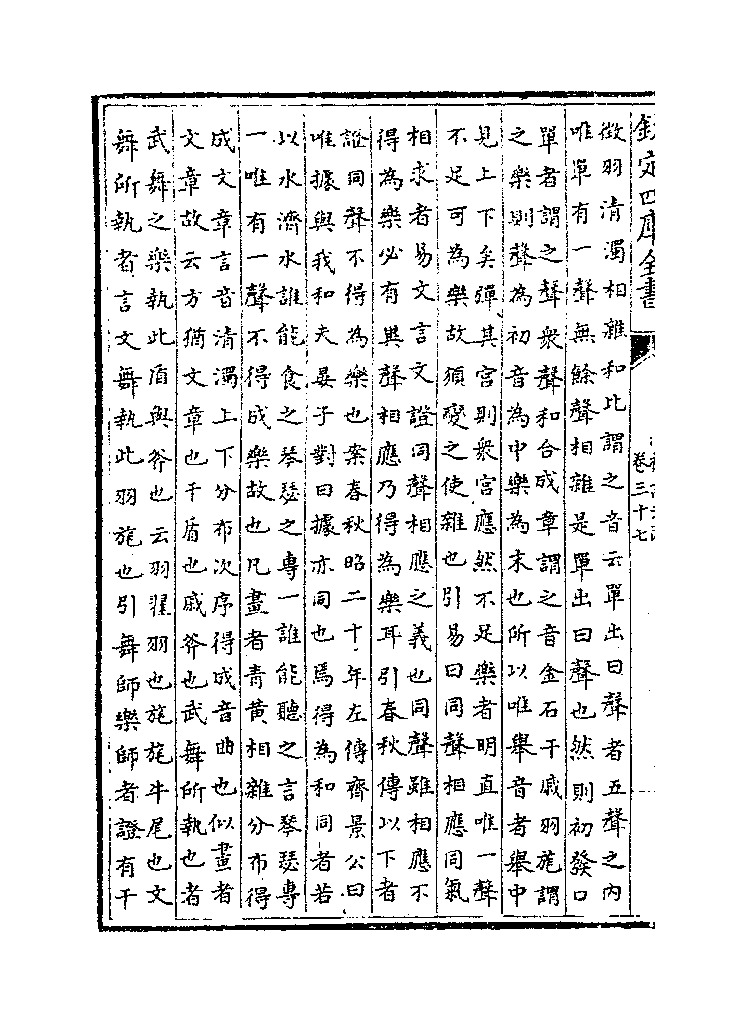 欽定四庫全書
卷三十七
徵羽清濁相雜和比謂之音云單出曰聲者五聲之內
唯單有一聲無餘聲相雜是單出曰聲也然則初發口
單者謂之聲衆聲和合成章謂之音金石干戚羽旄謂
之樂則聲為初音為中樂為末也所以唯舉音者舉中
見上下矣彈其宮則衆宮應然不足樂者明直唯一聲
不足可為樂故須變之使雜也引易曰同聲相應同氣
相求者易文言文證同聲相應之義也同聲雖相應不
得為樂必有異聲相應乃得為樂耳引春秋傳以下者
證同聲不得為樂也案春秋昭二十年左傳齊景公曰
唯據與我和夫晏子對曰據亦同也焉得為和同者若
以水濟水誰能食之琴瑟之專一誰能聽之言琴瑟專
一唯有一聲不得成樂故也凡畫者青黃相雜分布得
成文章言音清濁上下分布次序得成音曲也似畫者
文章故云方猶文章也干盾也戚斧也武舞所執也者
武舞之樂執此盾與斧也云羽翟羽也旄旄牛尾也文
舞所執者言文舞執此羽旄也引舞師樂師者證有干